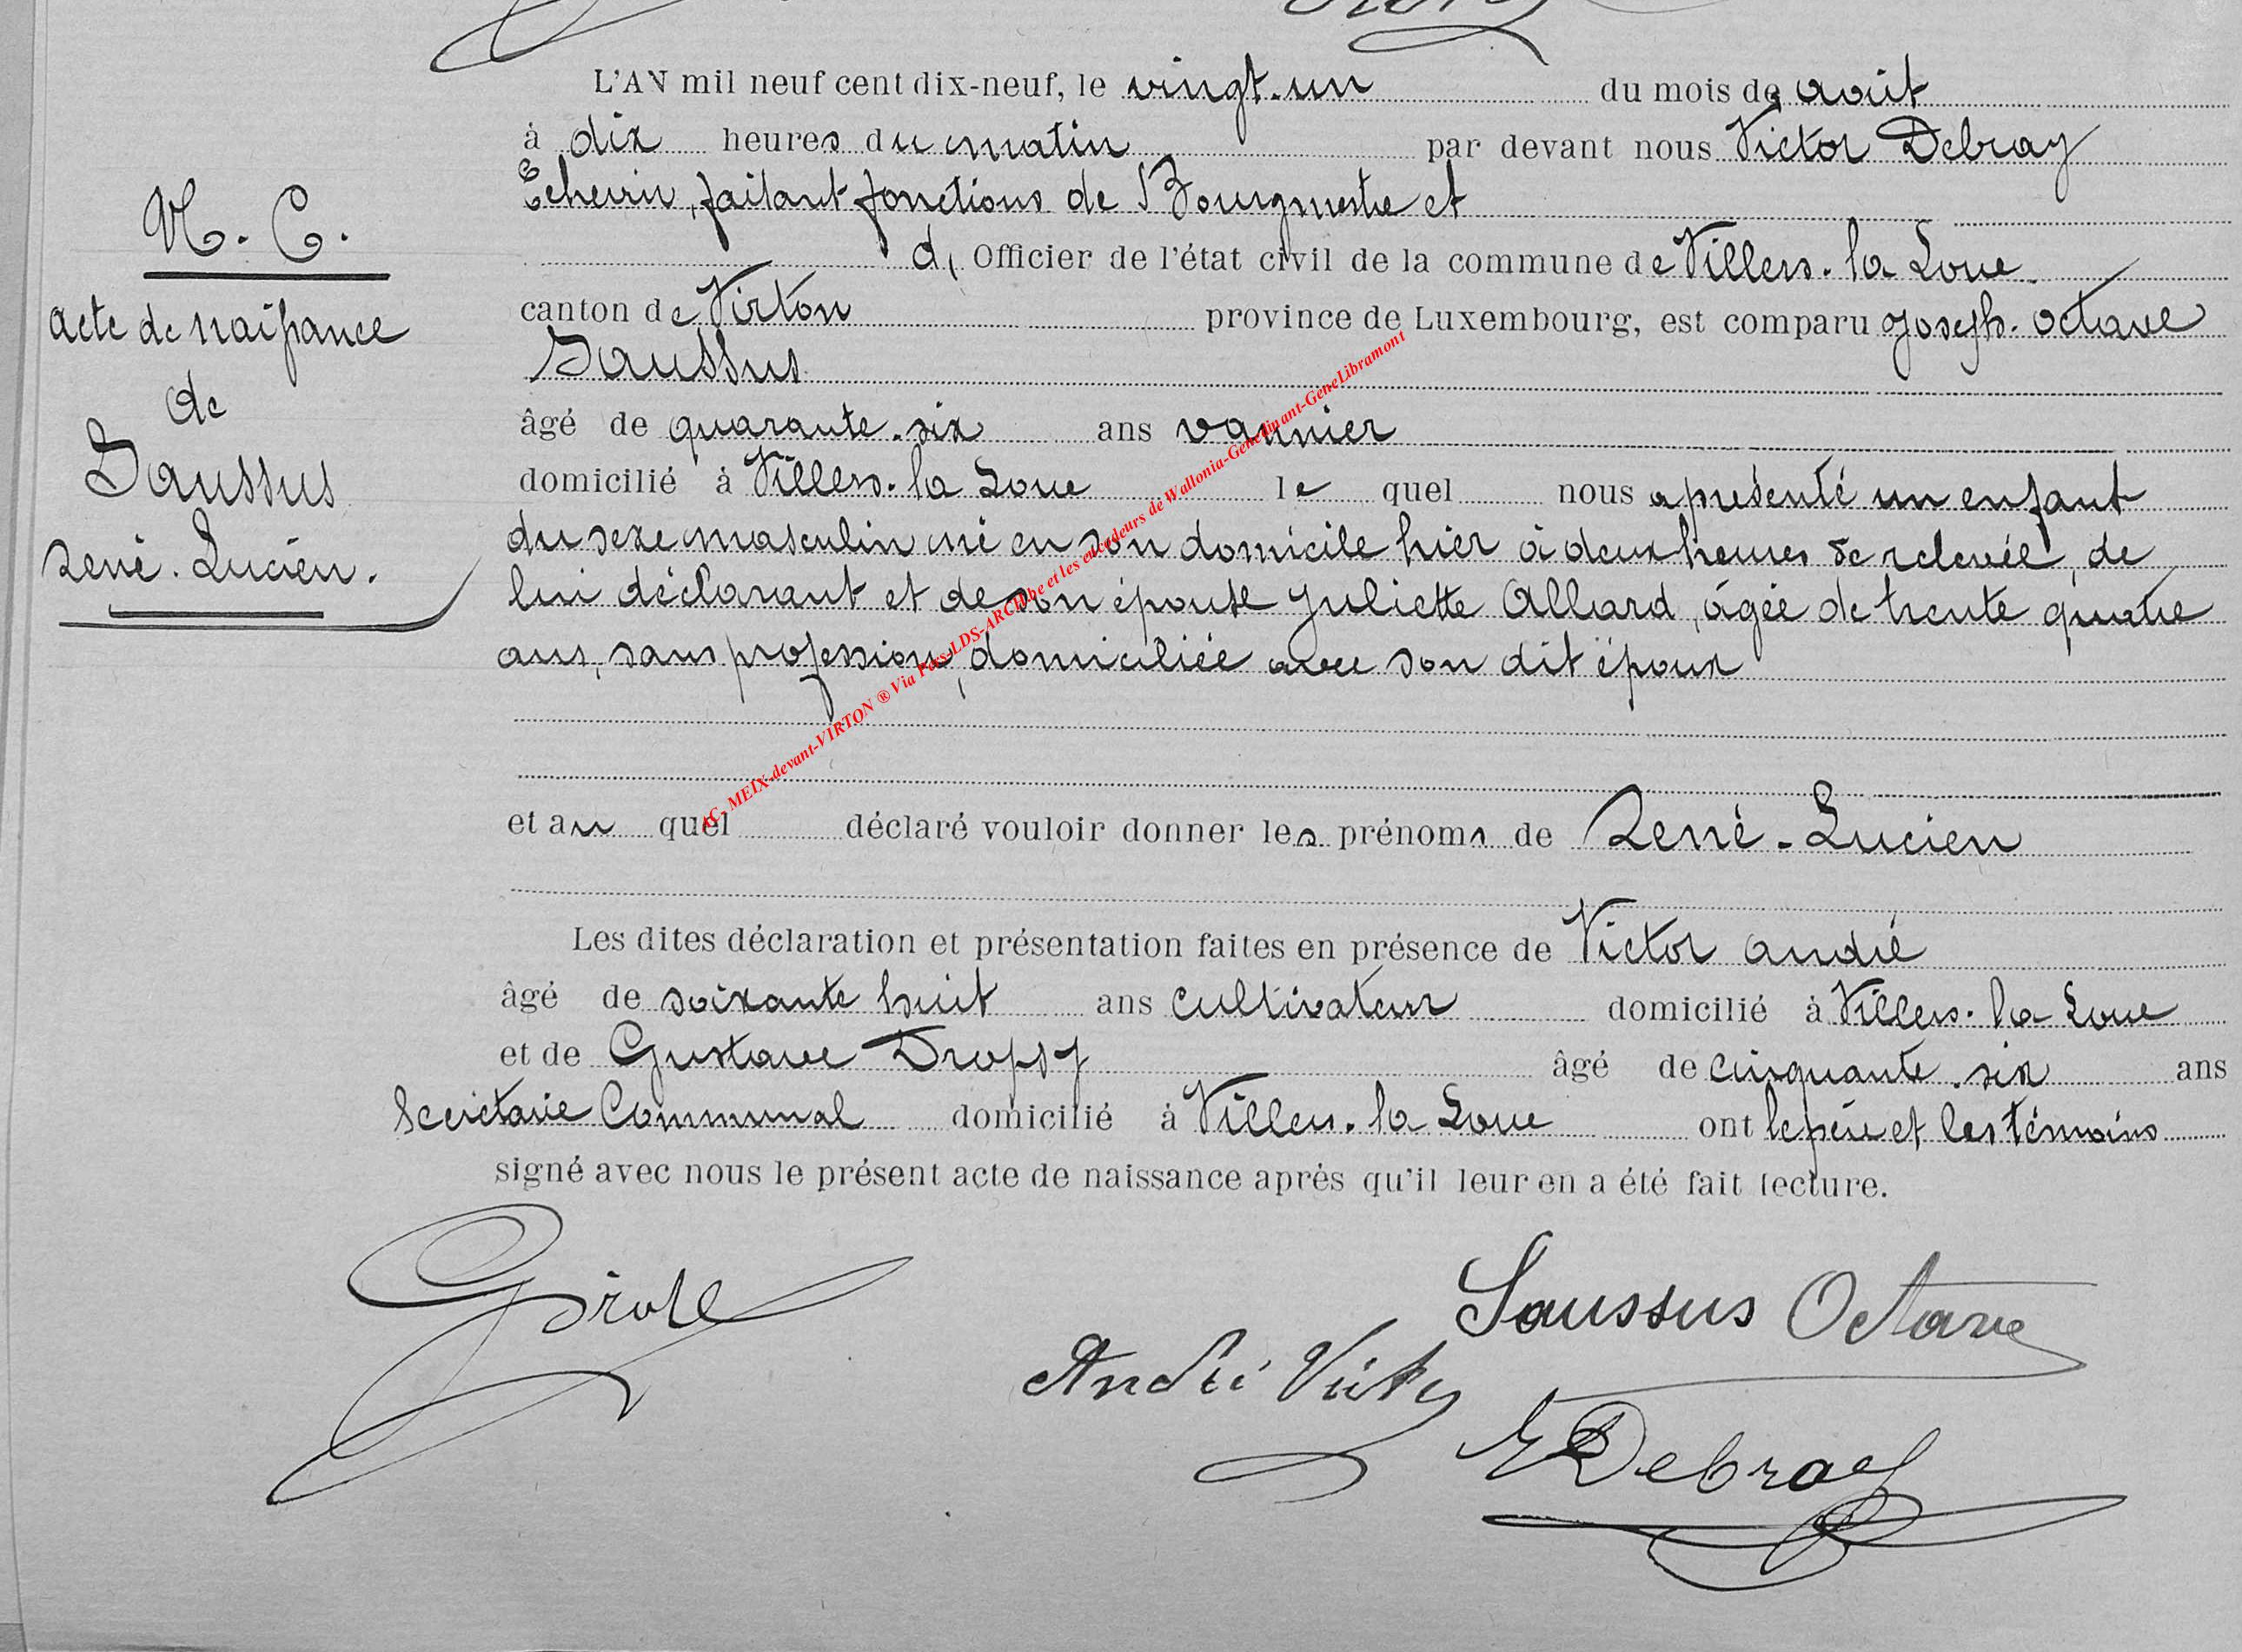 N. C.
Acte de naissance
de
Saussus
René. Lucien.
L'AN mil neuf cent dix-neuf, le vingt-un du mois de août
à dix heures du matin par devant nous Victor Debray
Echevin, faisant fonctions de Bourgmestre et
d, Officier de l'état civil de la commune de Villers-la Loue
canton de Virton province de Luxembourg, est comparu Joseph-Octave
Saussus
âgé de quarante-six ans vannier
domicilié à Villers-la Loue le quel nous a présenté un enfant
du sexe masculin né en son domicile hier à deux heures de relevée, de
lui déclarant et de son épouse Juliette Allard, âgée de trente quatre
ans, sans profession, domiciliée avec son dit époux
et au quel déclaré vouloir donner les prénoms de René-Lucien
Les dites déclaration et présentation faites en présence de Victor André
âgé de soixante huit ans cultivateur domicilié à Villers-la Loue
et de Gustave Dropsy âgé de cinquante-six ans
Secrétaire Communal domicilié à Villers-la Loue ont le père et les témoins
signé avec nous le présent acte de naissance après qu'il leur en a été fait lecture.
Saussus Octave
André Victor
Debray
AC- MEIX-devant-VIRTON ® Via Pass-LDS-ARCH.be et les encodeurs de Wallonia-Genedinant-GeneLibramont